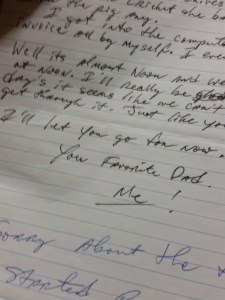 the Cricket she b
the Big any.
I got into the computer
invoice all by myself. I even
Well its almost Noon and we
at Noon. I'll really be glad
days it seems like we can't
get through it. Just like you
I'll let you go for now.
Your Favorite Dad.
Me!
Sorry About the
Started